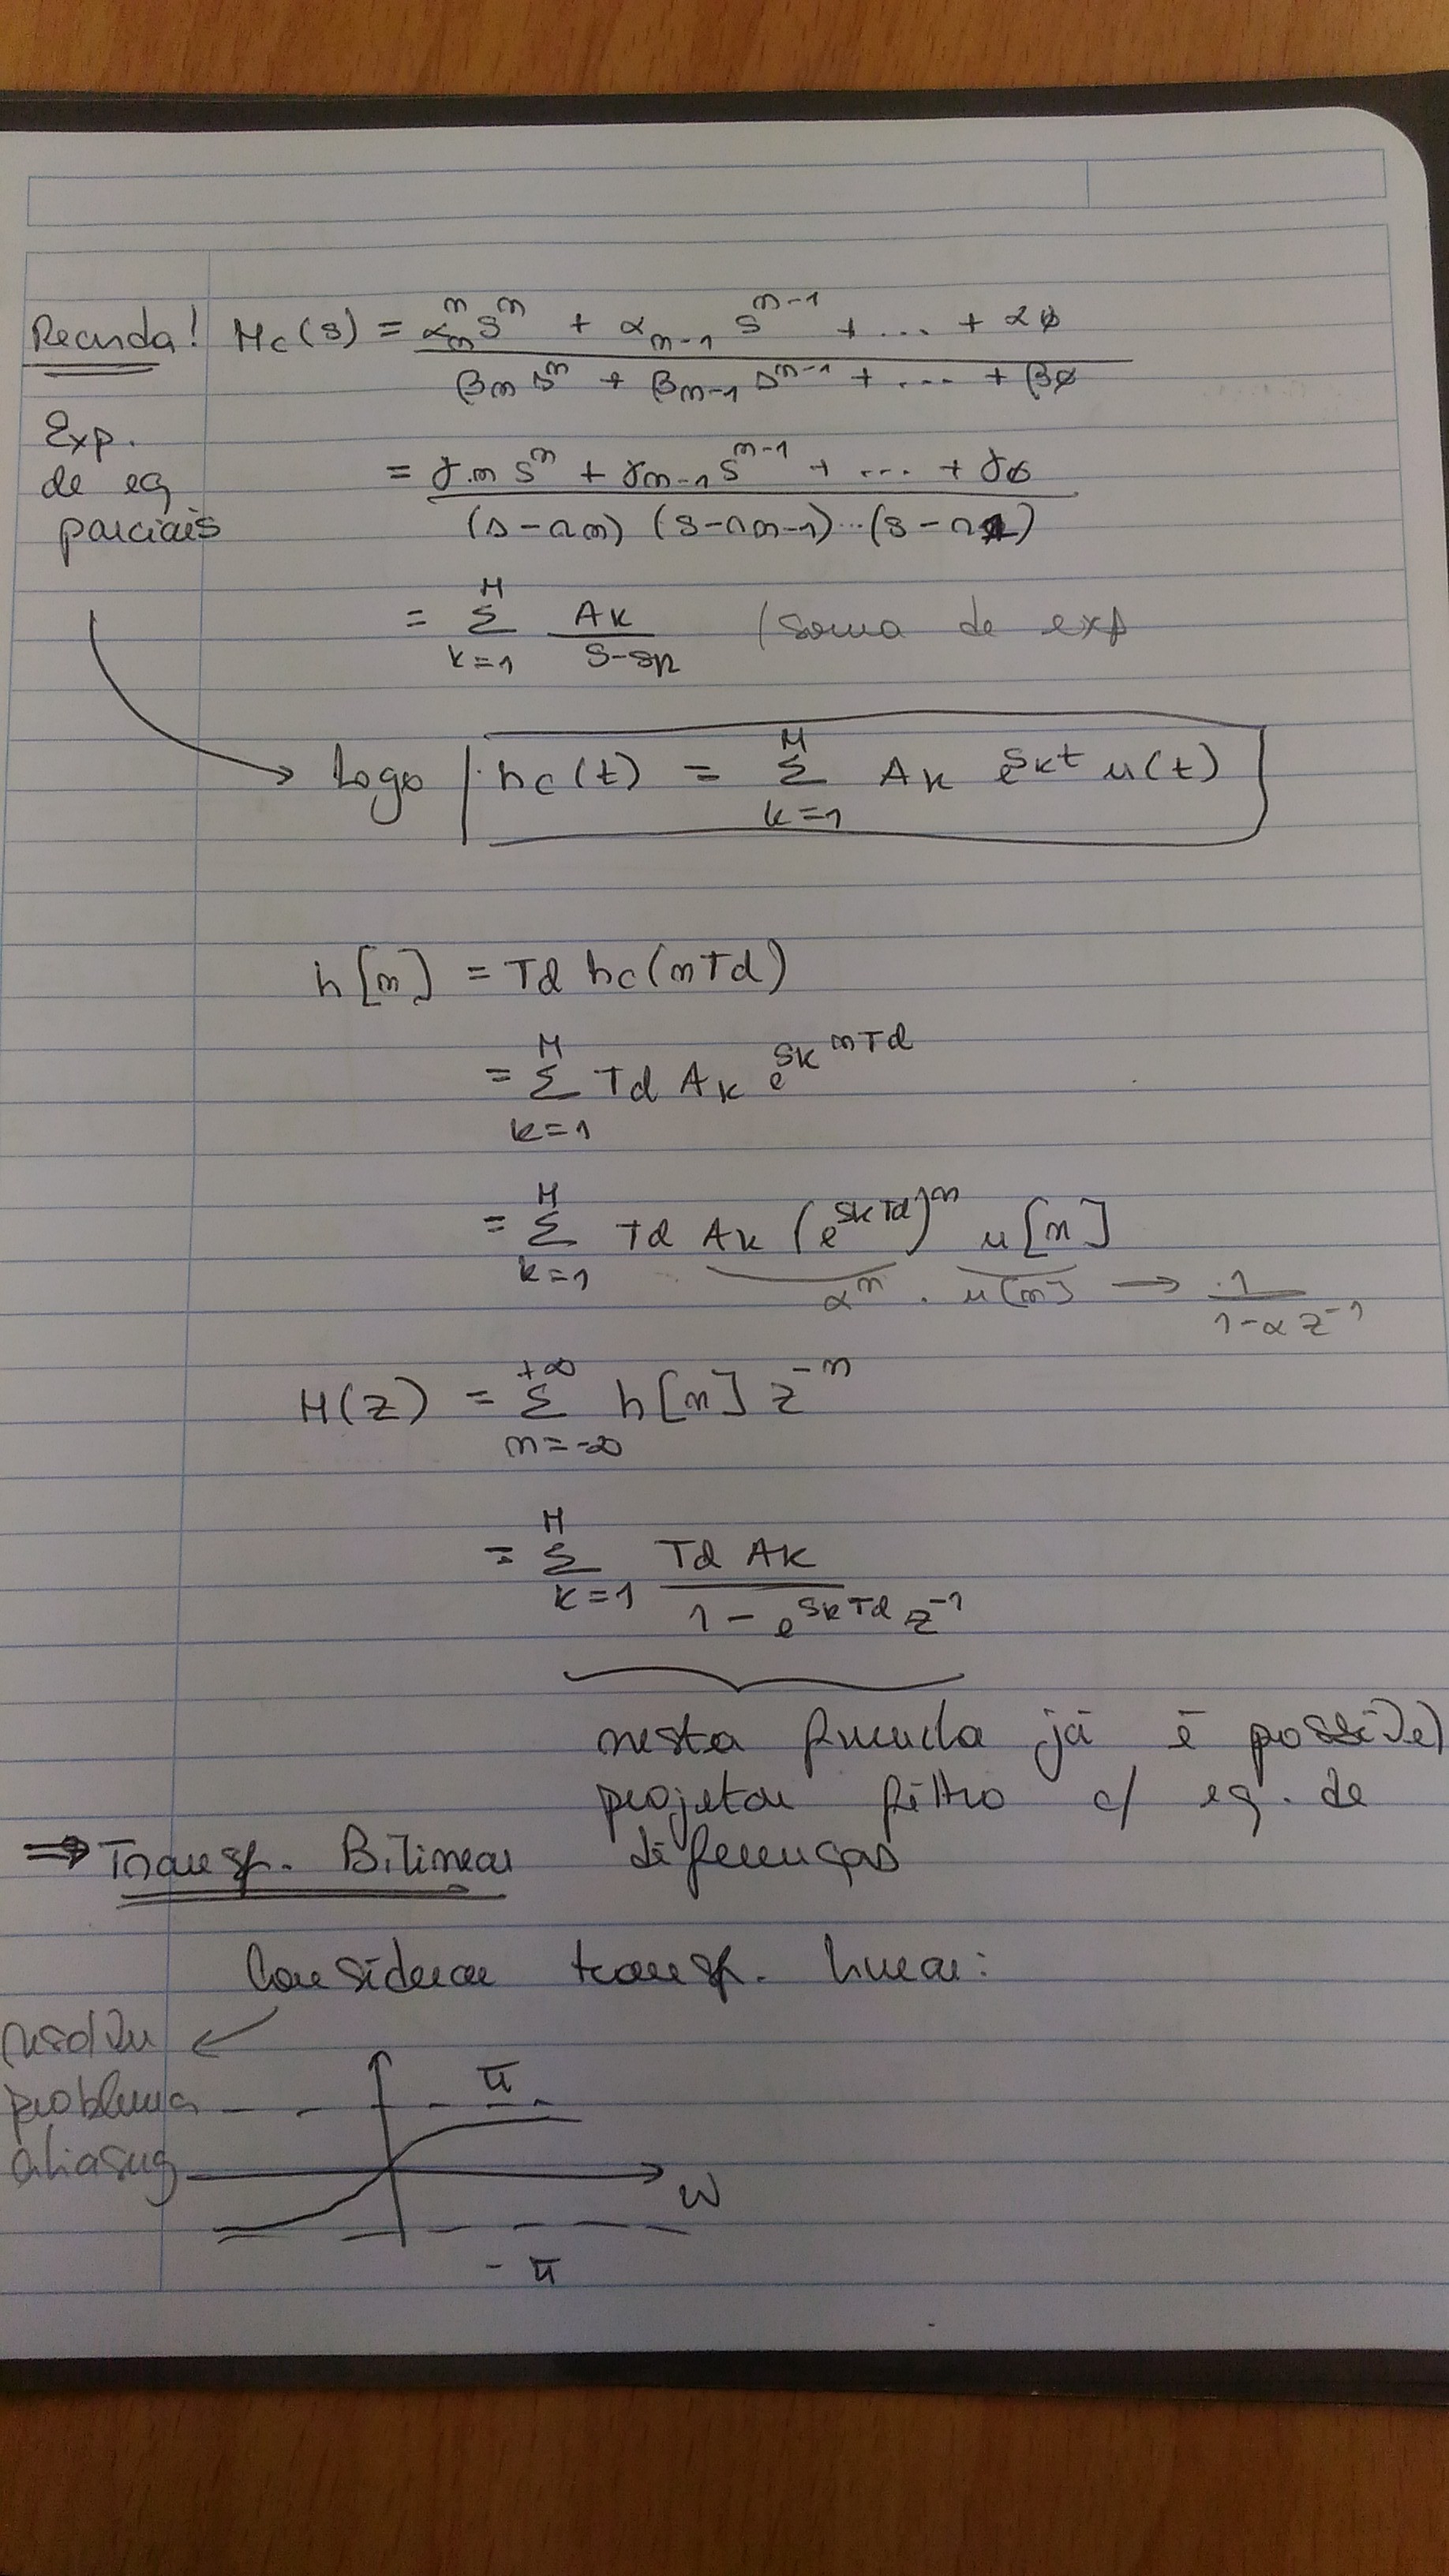 Recorda! Hc(s) = αm^n s^n + αm-1 s^n-1 + ... + αø
βm s^n + βm-1 s^n-1 + ... + βø
Exp.
de eq
parciais
= γm s^n + γm-1 s^n-1 + ... + γø
(s-am) (s-am-1)...(s-a1)
= Σ Ak (soma de exp
M
k=1 s-sk
Logo hc(t) = Σ Ak e^skt u(t)
M
k=1
h[n] = Td hc(nTd)
= Σ Td Ak e^sk nTd
M
k=1
= Σ Td Ak (e^skTd)^n u[n]
M
k=1
α^n . u[n] → 1
1-αz^-1
H(z) = Σ h[n] z^-n
+∞
n=-∞
= Σ Td Ak
M
k=1 1 - e^skTd z^-1
nesta já é possível
projetar filtro c/ eq. de
diferenças
⇒ Transf. Bilinear
Considerar transf. linear:
resolve
problema
aliasing
π
w
-π